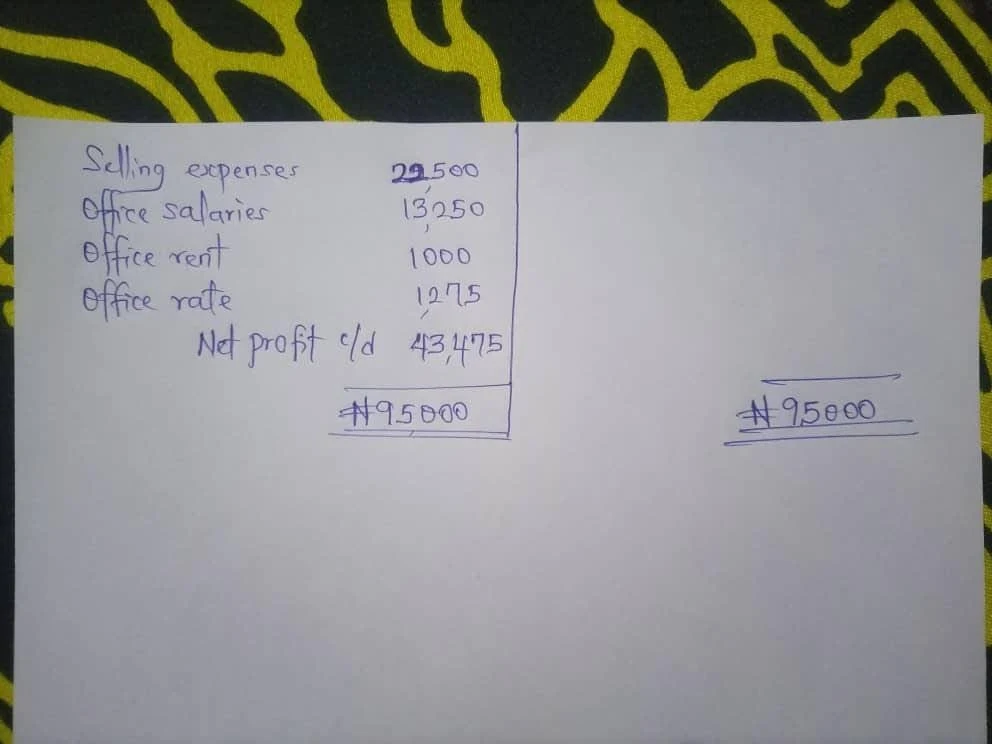 Selling expenses
Office salaries 13,250
Office rent 1000
Office rate 1,275
Net profit c/d 43,475
₦95,000 ₦95,000